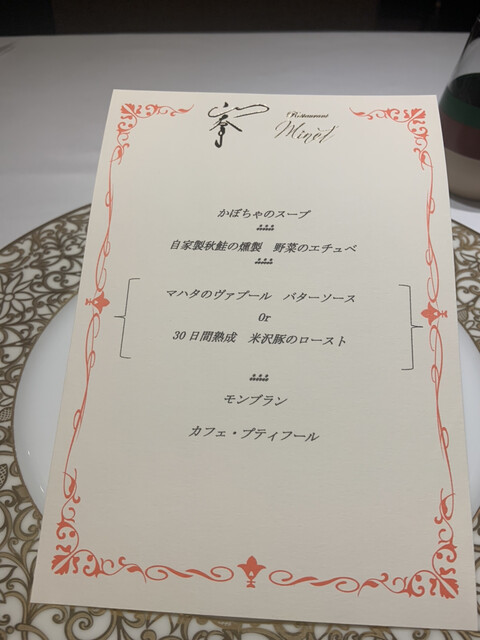 峯
Restaurant
Minet
かぼちゃのスープ
自家製秋鮭の燻製　野菜のエチュベ
マハタのヴァプール　バターソース
Or
30日間熟成　米沢豚のロースト
モンブラン
カフェ・プティフール